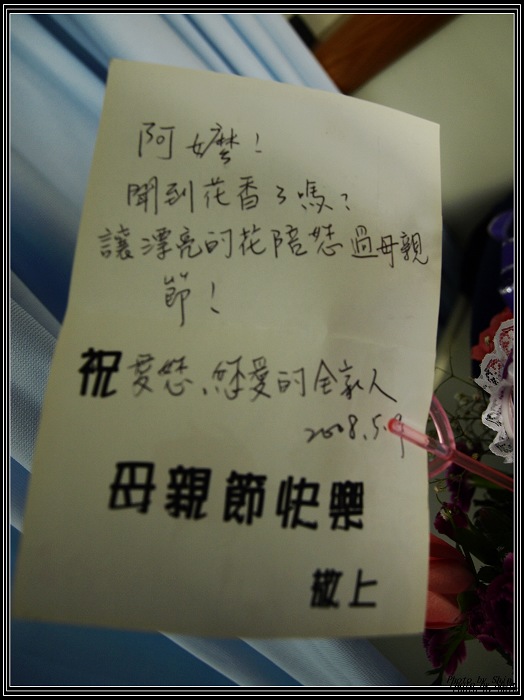 阿嬤！
聞到花香了嗎？
讓漂亮的花陪您過母親
節！
祝愛您、您愛的全家人
2008.5.9
母親節快樂
敬上
Photo by